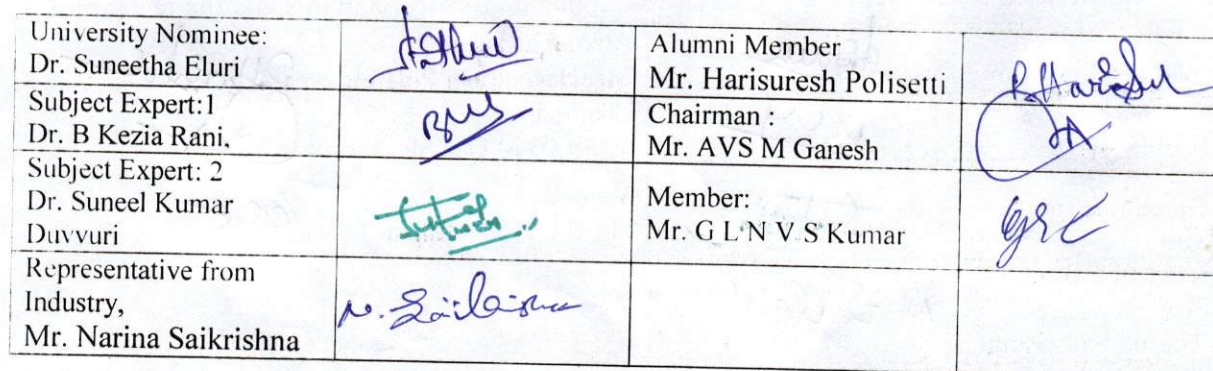 University Nominee:
Dr. Suneetha Eluri
Alumni Member
Mr. Harisuresh Polisetti
Subject Expert:1
Dr. B Kezia Rani,
Chairman :
Mr. AVS M Ganesh
Subject Expert: 2
Dr. Suneel Kumar
Duvvuri
Member:
Mr. G L N V S Kumar
Representative from
Industry,
Mr. Narina Saikrishna
N. Saikrishna